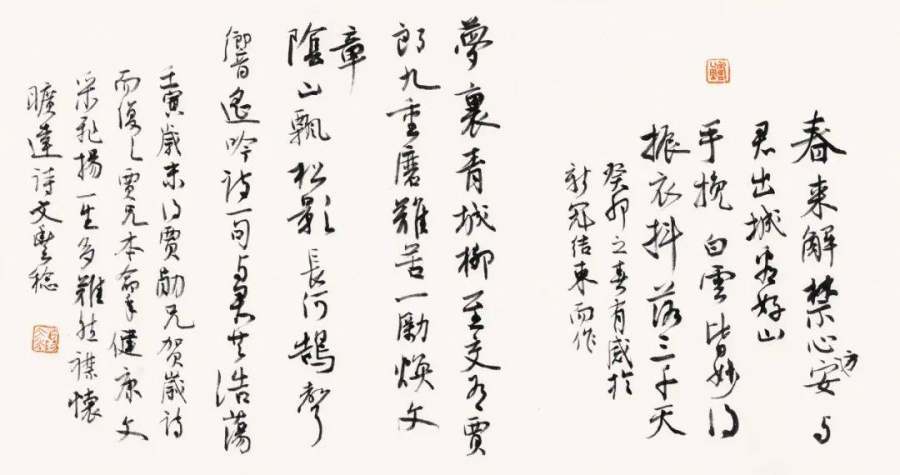 春来解禁心方安与
君出城看好山
手挽白雲皆妙得
振衣抖落三千天
癸卯之春有感於
新冠结束而作
夢裏青城柳至交賈
郎九重磨難苦一勵焕文
章
陰山飄松影長河鵠聲
響遥吟诗一句与君共浩蕩
壬寅歲末得賈勛兄贺歲诗
而復之賈兄本命年健康文
采飛揚一生多難然襟懷
曠達诗文豐稔